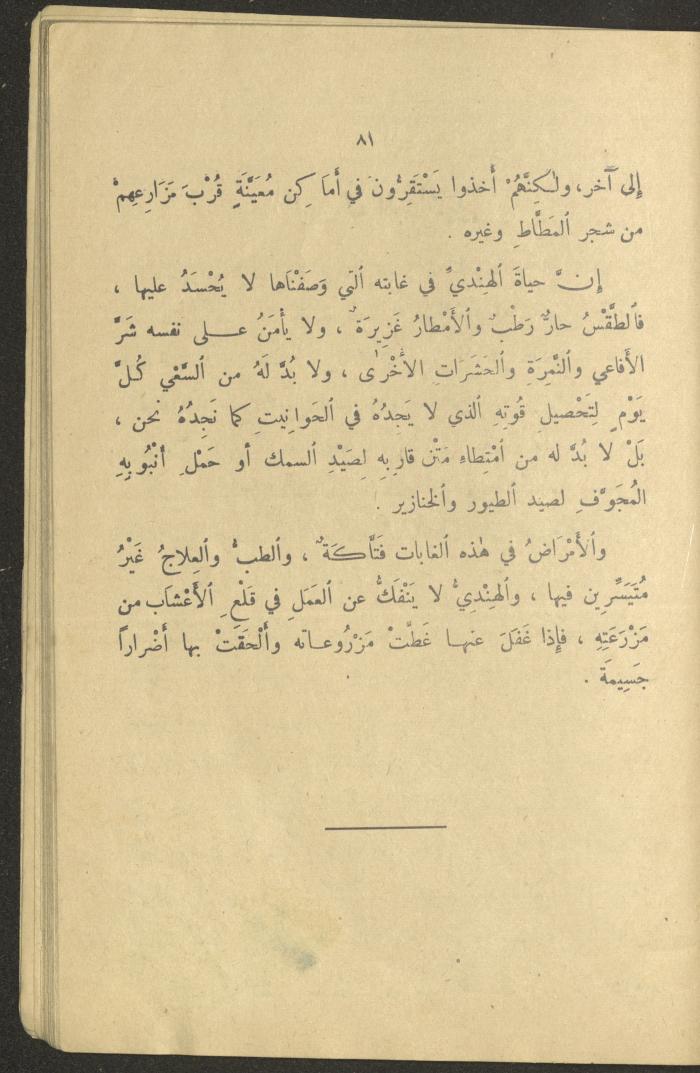 ٨١
إِلى آخر، ولٰـكِنَّهُمْ أَخذوا يَسْتَقِرُّونَ في أَمَا كِن مُعَيَّنَةٍ قُرْبَ مَزَارِعِهِمْ
من شجر ٱلمَطَّاطِ وغيره .
إِنَّ حياةَ ٱلهِنْديِّ في غابته ٱلتي وَصَفْنَاها لا يُحْسَدُ عليها ،
فَٱلطَّقْسُ حارٌّ رَطْبٌ وٱلأَمْطارُ غَزِيرَةٌ ، ولا يأْمَنُ عـــلى نفسه شَرَّ
الأَفاعي وٱلنَّمِرَةِ وٱلحَشَرَاتِ الأُخْرَى ، ولا بُدَّ لَهُ من ٱلسَّعْي كُـلَّ
يَوْمٍ لِتَحْصيلِ قُوتِهِ ٱلذي لا يَجِدُهُ في ٱلحَوانِيتِ كما نَجِدُهُ نحن ،
بَلْ لا بُدَّ له من ٱمْتِطاءِ مَتْنِ قارِبِهِ لِصَيْدِ ٱلسمك أو حَمْلِ أُنْبُوبِهِ
المُجَوَّفِ لصيد ٱلطيور وٱلخنازير .
وٱلأَمْرَاضُ في هٰذه ٱلغابات فَتَّاكَةٌ ، وٱلطبُّ وٱلعِلاجُ غَيْرُ
مُتَيَسِّرِين فيها ، وٱلهِنْدِيُّ لا يَنْفَكُّ عن ٱلعَمَلِ في قَلْعِ ٱلأَعْشابِ من
مَزْرَعَتِهِ ، فإِذا غَفَلَ عنهـا غَطَّتْ مَزْرُوعـاته وأَلْحَقَتْ بها أَضْراراً
جَسِيمَةً .